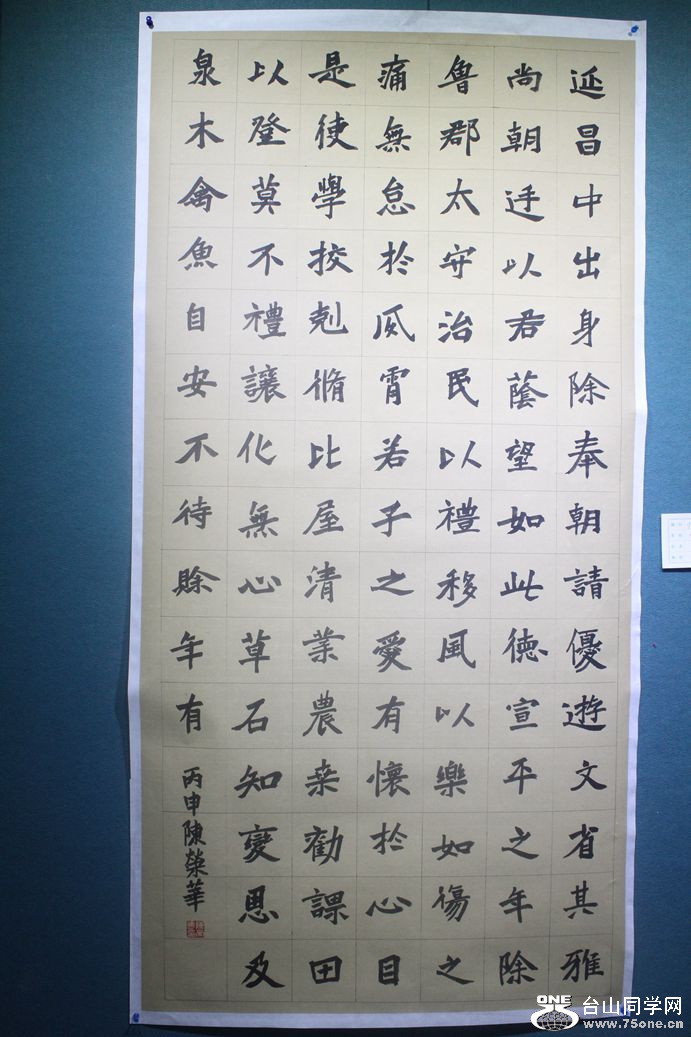 延昌中出身除奉朝請優遊文省其雅
尚朝迋以君蔭望如此徳宣平之年除
魯郡太守治民以禮移風以樂如傷之
痛無怠於夙霄若子之愛有懷於心目
是使學挍剋脩比屋清業農桒勸課田
以登莫不禮讓化無心草石知變恩及
泉木禽魚自安不待賒年有
丙申陳榮華
ONE
台山同学网
www.75one.cn